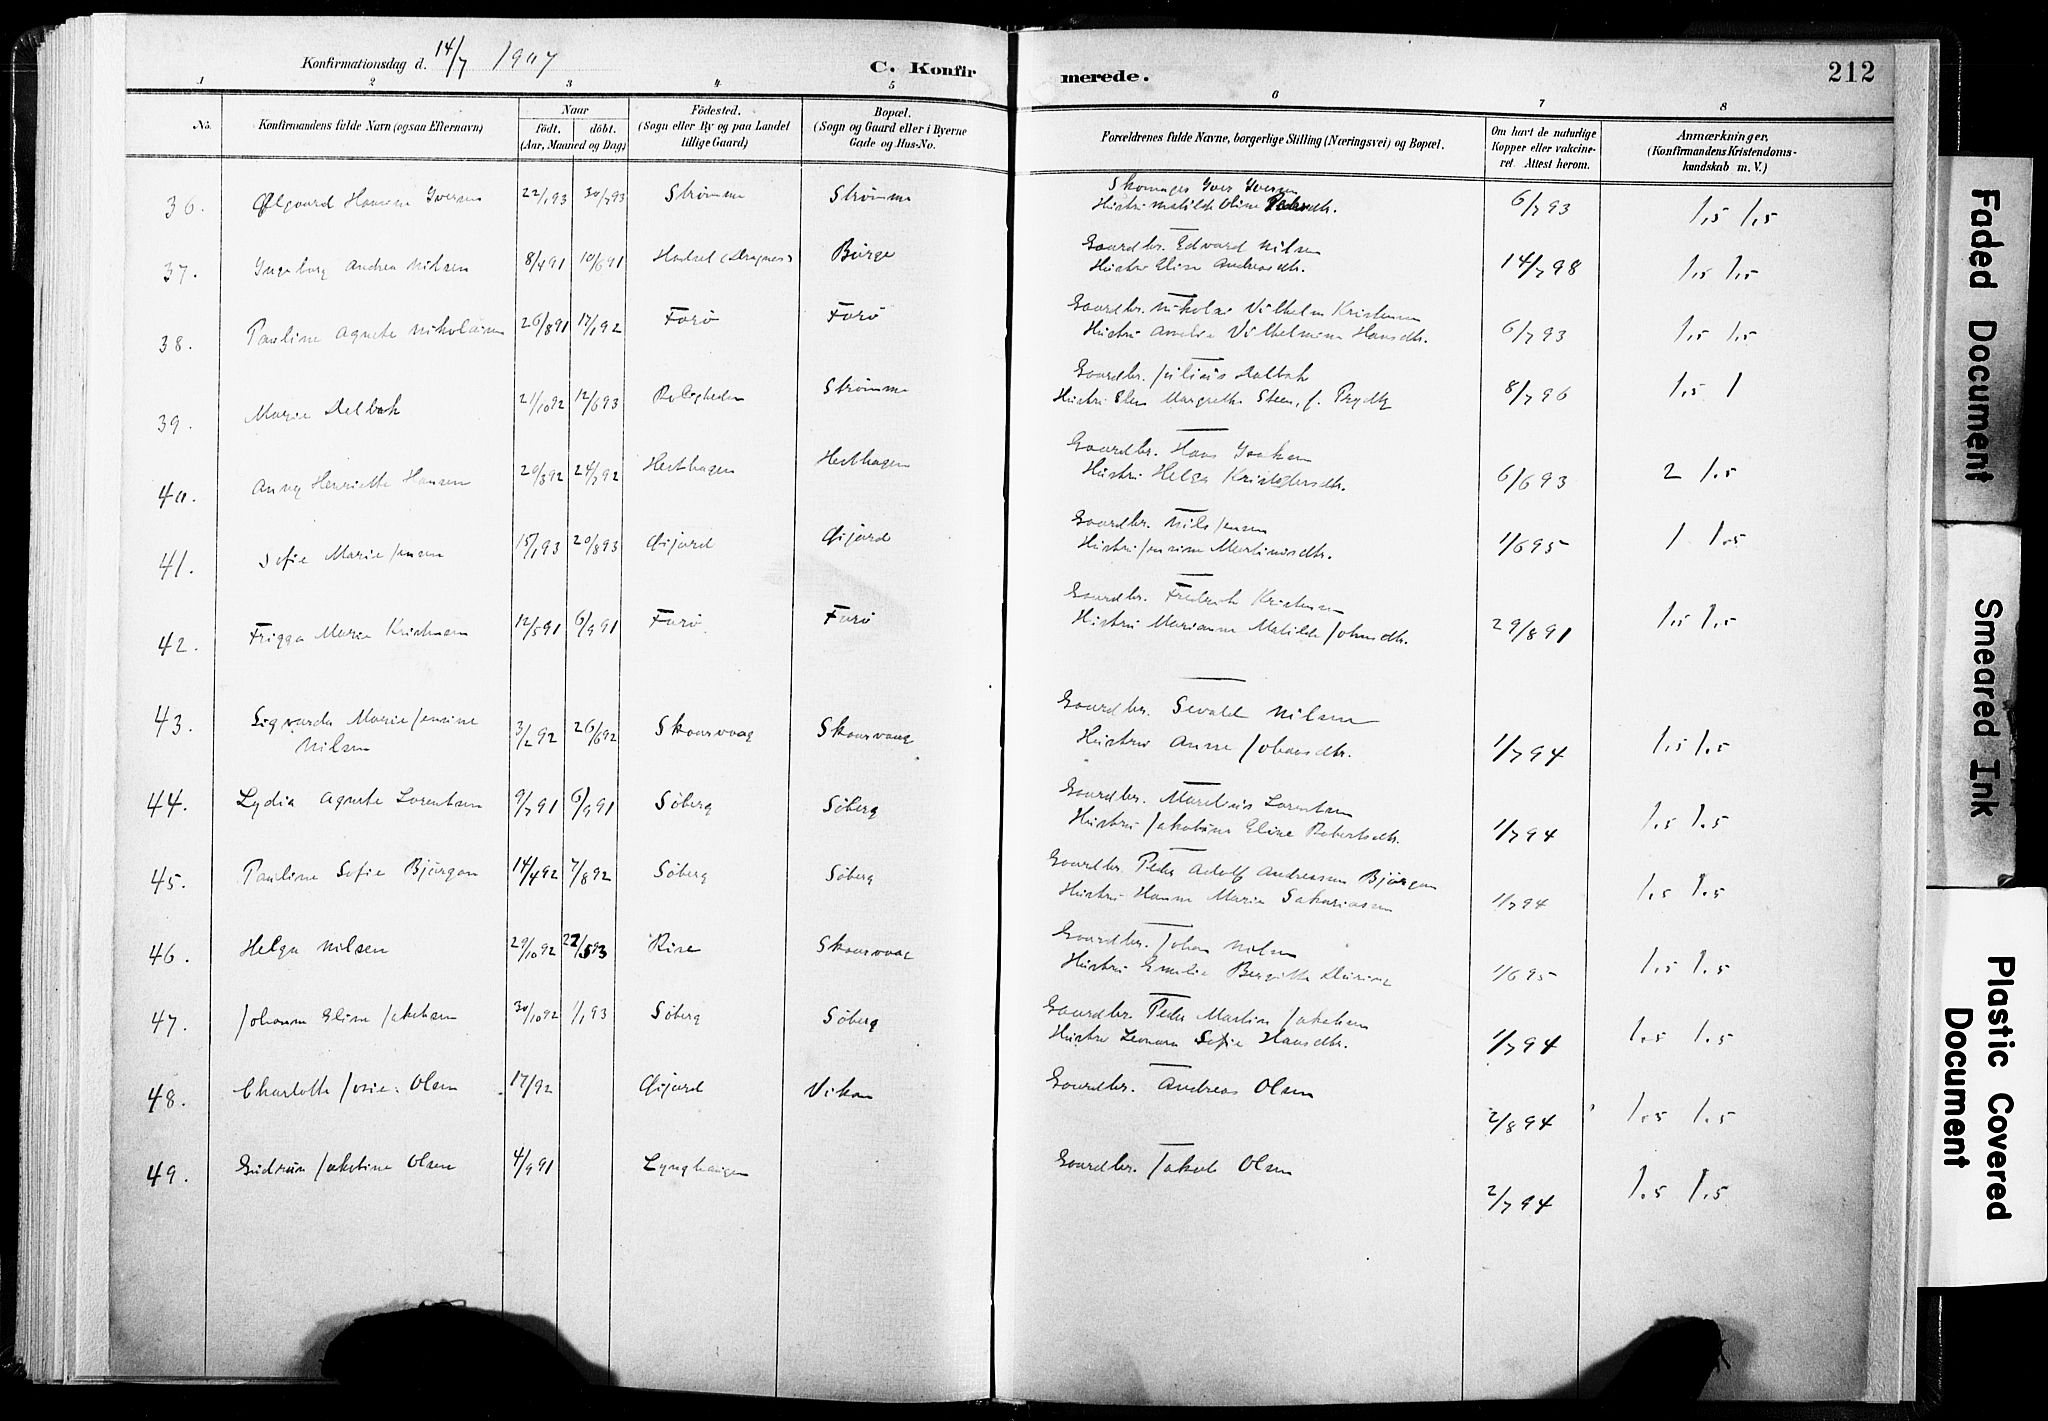 Konfirmationsdag d. 14/7 1907
C. Konfirmerede.
212
1 2 3 4 5 6 7 8
No.
Konfirmandens fulde Navn (ogsaa Efternavn)
Naar
födt. döbt.
(Aar, Maaned og Dag)
Födested.
(Sogn eller By og paa Landet
tillige Gaard)
Bopæl.
(Sogn og Gaard eller i Byerne
Gade og Hus-No.
Forældrenes fulde Navne, borgerlige Stilling (Næringsvei) og Bopæl.
Om havt de naturlige
Kopper eller vakcine-
ret. Attest herom.
Anmærkninger.
(Konfirmandens Kristendoms-
kundskab m. V.)
36. Ølgaard Iversen 22/1 93 30/7 93 Strømme Strømme
Iver Iversen
Hustru Matilde Oline
6/7 93 1,5 1,5
37. Ingeborg Andrea Nilsen 8/4 91 10/6 91 Hadsel (Dragnes) Børge
Gaardbr. Edvard Nilsen
Hustru Elise Andreasdtr.
14/7 98 1,5 1,5
38. Pauline Agnete Nikolaisen 26/8 91 17/1 92 Forø Forø
Gaardbr. Nikolai Vilhelm Kristensen
Hustru Amalie Vilhelmine Hansdtr.
6/7 93 1,5 1,5
39. Marie Dalbak 21/10 92 12/6 93 Roligheden Strømme
Gaardbr. Julius Dalbak
Hustru Elen Margrethe Steen, f. Prydtz
8/7 96 1,5 1
40. Anny Henriette Hansen 20/3 92 24/7 92 Hesthagen Hesthagen
Gaardbr. Hans
Hustru Helga
6/6 93 2 1.5
41. Sofie Marie Jensen 15/1 93 20/8 93 Gijord Gijord
Gaardbr. Nils Jensen
Hustru Jensine Martinusdtr.
1/6 95 1 1.5
42. Frigga Marie Kristensen 12/5 91 6/9 91 Forø Forø
Gaardbr. Fredrik Kristensen
Hustru Marianne Matilde Johnsdtr.
29/8 91 1,5 1,5
43. Sigvarda Marie Jensine
Nilsen 3/2 92 26/6 92 Skaarvaag Skaarvaag
Gaardbr. Sevald Nilsen
Hustru Anne Johansdtr.
1/7 94 1,5 1,5
44. Lydia Agnete Lorentsen 9/7 91 6/9 91 Søberg Søberg
Gaardbr. Marelius Lorentsen
Hustru Jakobine Eline Robertsdtr.
1/7 94 1,5 1,5
45. Pauline Sofie Bjørgan 14/4 92 7/8 92 Søberg Søberg
Gaardbr. Peder Adolf Andreassen Bjørgan
Hustru Hanna Marie Sakariassen
1/7 94 1,5 1,5
46. Helga Nilsen 29/10 92 22/5 93 Rise Skaarvaag
Gaardbr. Johan Nilsen
Hustru Emilie Bergitte
1/6 95 1,5 1,5
47. Johanne Eline Jakobsen 30/10 92 1/1 93 Søberg Søberg
Gaardbr. Peder Martin Jakobsen
Hustru Leonora Sofie Hansdtr.
1/7 94 1.5 1.5
48. Charlotte Josie. Olsen 17/ 92 Gijord Vikan
Gaardbr. Andreas Olsen
2/8 94 1.5 1.5
49. Gudrun Jakobine Olsen 4/9 91 Lynghaugen
Gaardbr. Jakob Olsen
2/7 94 1.5 1.5
Faded Document
Smeared Ink
Plastic Covered
Document